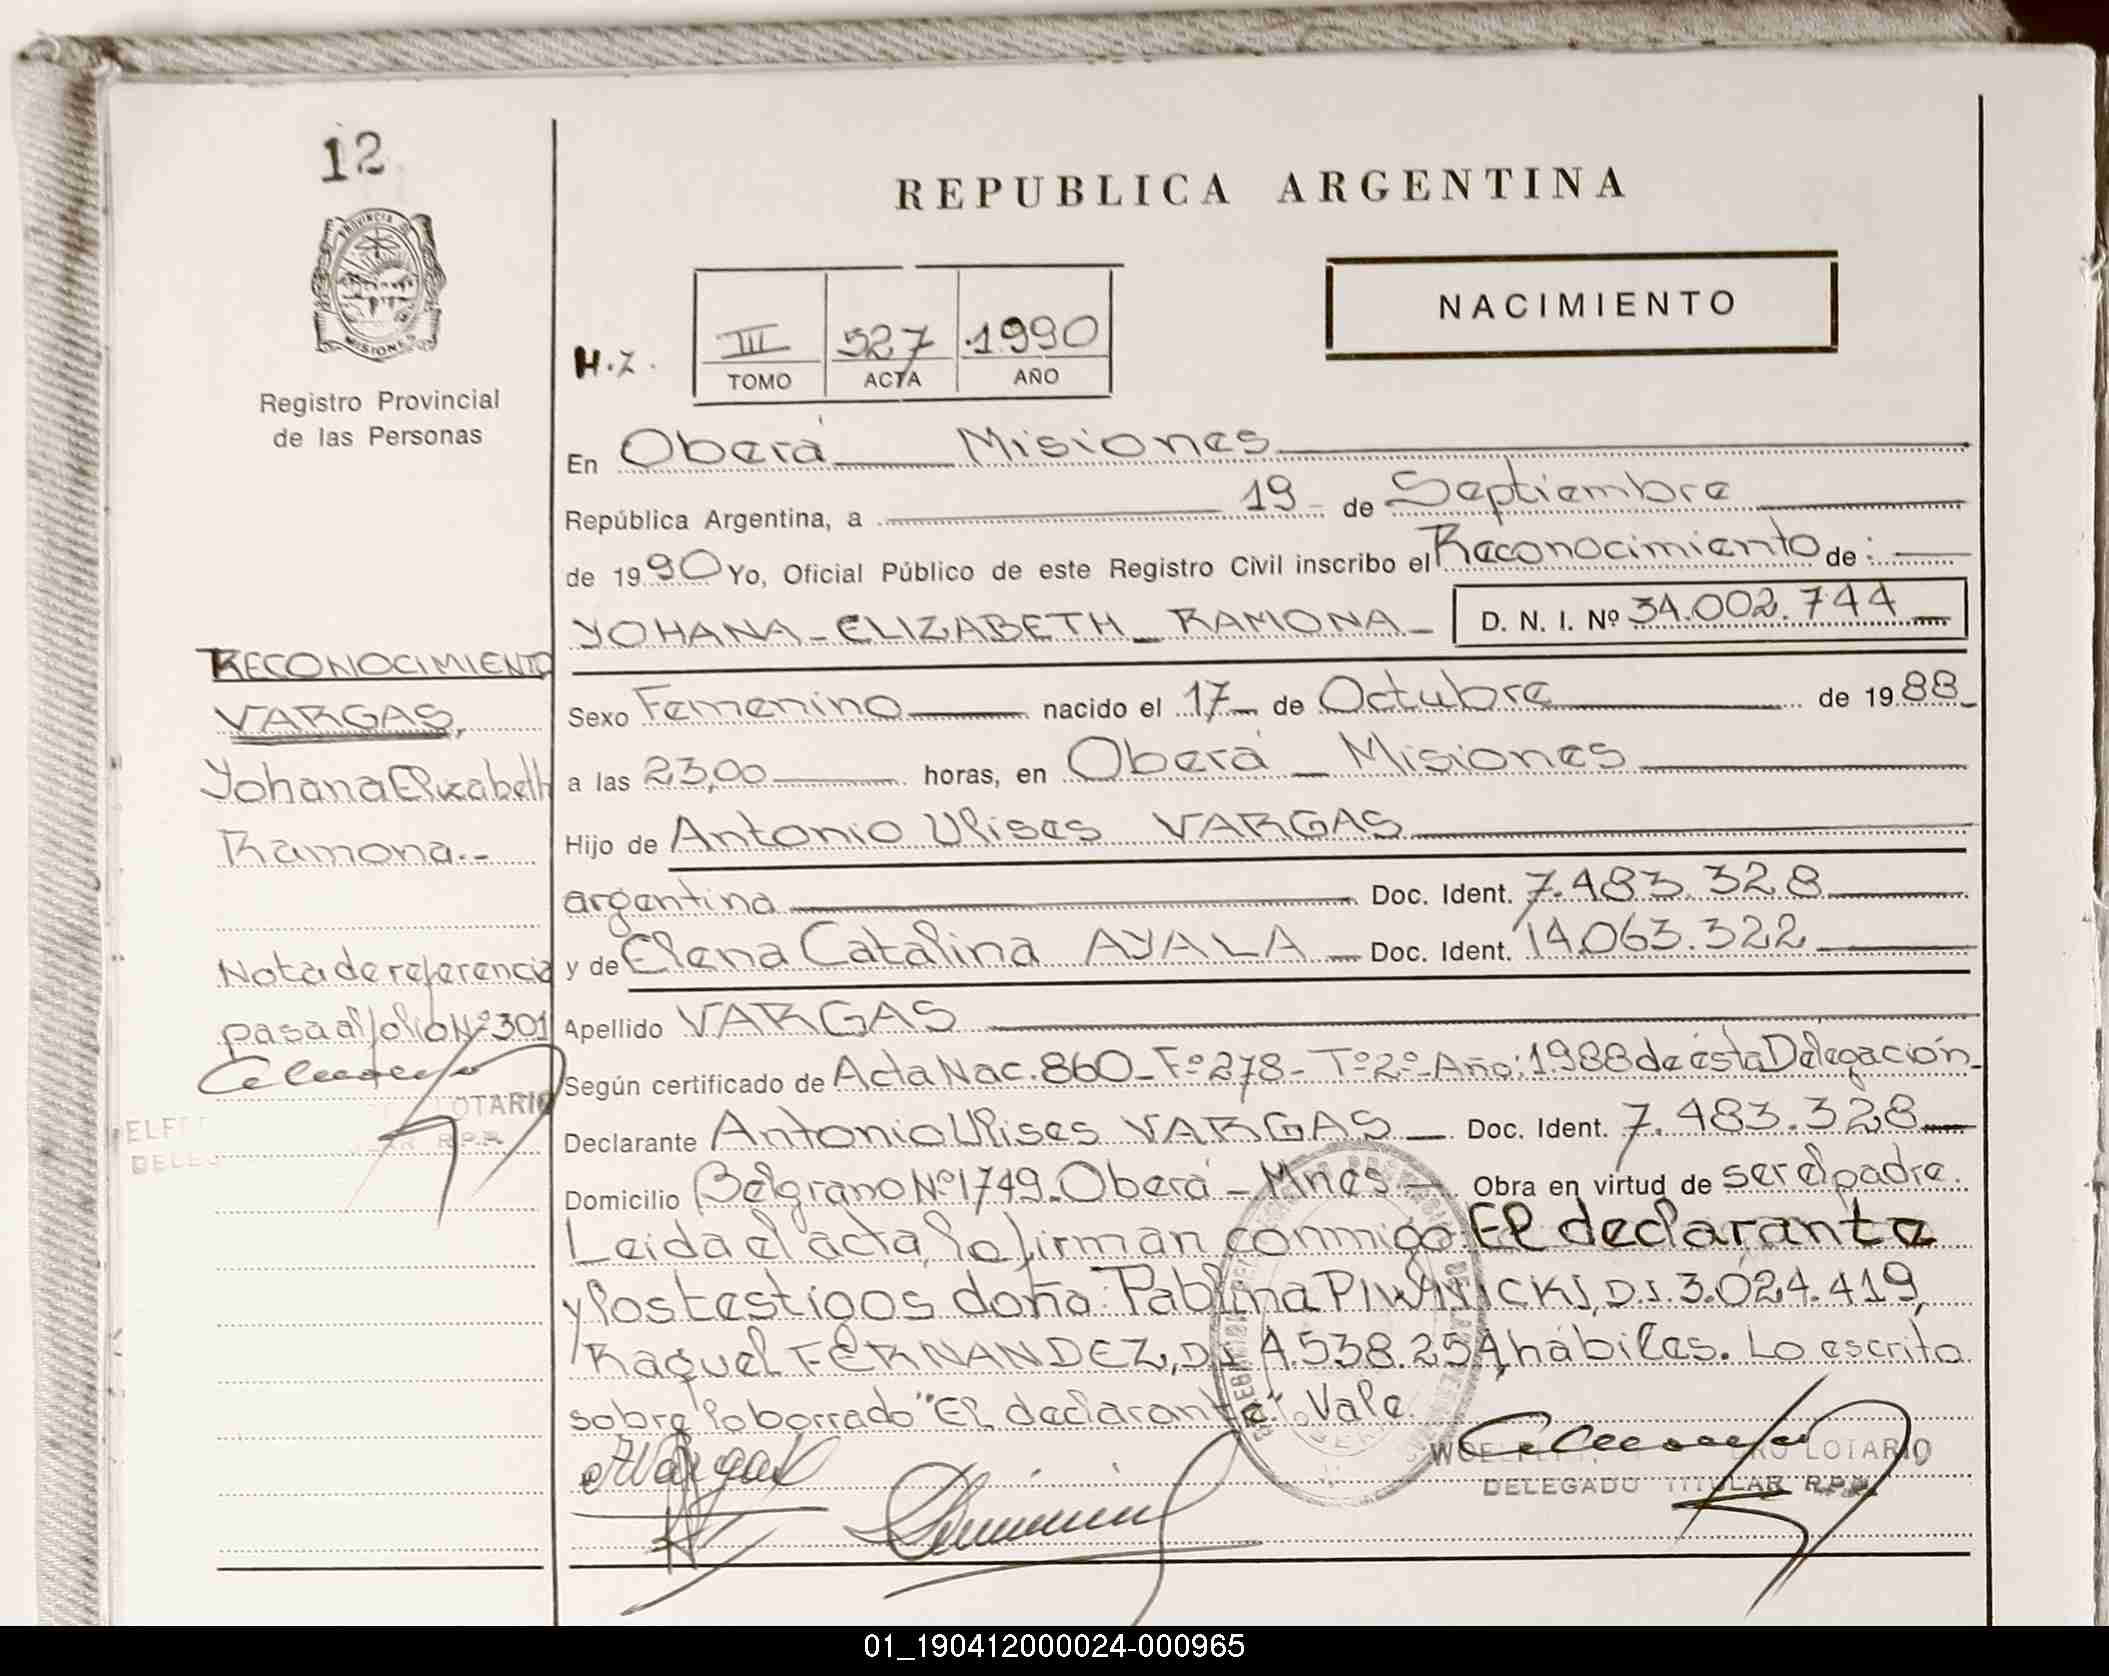 12
PROVINCIA DE
MISIONES
Registro Provincial
de las Personas
REPUBLICA ARGENTINA
NACIMIENTO
H.Z.
III 527 1990
TOMO ACTA AÑO
En Oberá Misiones
República Argentina, a 19 de Septiembre
de 1990 Yo, Oficial Público de este Registro Civil inscribo el Reconocimiento de:
YOHANA ELIZABETH RAMONA D. N. I. Nº 34.002.744
Sexo Femenino nacido el 17 de Octubre de 1988
a las 23,00 horas, en Oberá Misiones
Hijo de Antonio Ulises VARGAS
argentina Doc. Ident. 7.483.328
y de Elena Catalina AYALA Doc. Ident. 14.063.322
Apellido VARGAS
Según certificado de Acta Nac. 860 - Fº 278 - Tº 2º - Año: 1988 de ésta Delegación
Declarante Antonio Ulises VARGAS Doc. Ident. 7.483.328
Domicilio Belgrano Nº 1749 - Oberá - Mnes - Obra en virtud de ser el padre.
Leida el acta, la firman conmigo El declarante
y los testigos doña: Pablina PIWNICKI, D.I. 3.024.419,
Raquel FERNANDEZ, D.I. 4.538.254, hábiles. Lo escrito
sobre lo borrado "El declarante". Vale.
LOTARIO
DELEGADO TITULAR R.P.P.
RECONOCIMIENTO
VARGAS,
Yohana Elizabeth
Ramona.-
Nota de referencia
pasa al folio Nº 301
LOTARIO
R.P.P.
01_190412000024-000965